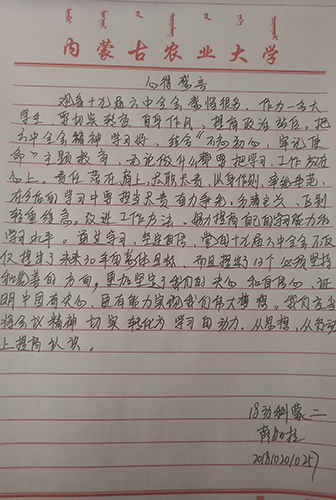 内蒙古农业大学
心得感言
观看十九届六中全会感悟很多，作为一名大
学生，要切实转变自身作风，提高政治站位。把
六中全会精神学习好，结合“不忘初心，牢记使
命”主题教育，无论做什么都要把学习、工作放在
心上。责任落在肩上，尽职尽责，以身作则，率先垂范，
在今后的学习中要担当尽责有力争先，分清主次，区别
轻重缓急。改进工作方法，努力提高自己的学习能力和
学习水平。通过学习，坚定自信，党的十九届六中全会不仅
仅提出了未来30年的总体目标，而且提出了13个必须坚持
和完善的方向，更加坚定了我们的决心和自信心，证
明中国有决心，更有能力实现我们伟大梦想。我们应当
将会议精神切实转化为学习的动力，从思想，从行动
上提高认识。
18动科蒙二
2018102010257